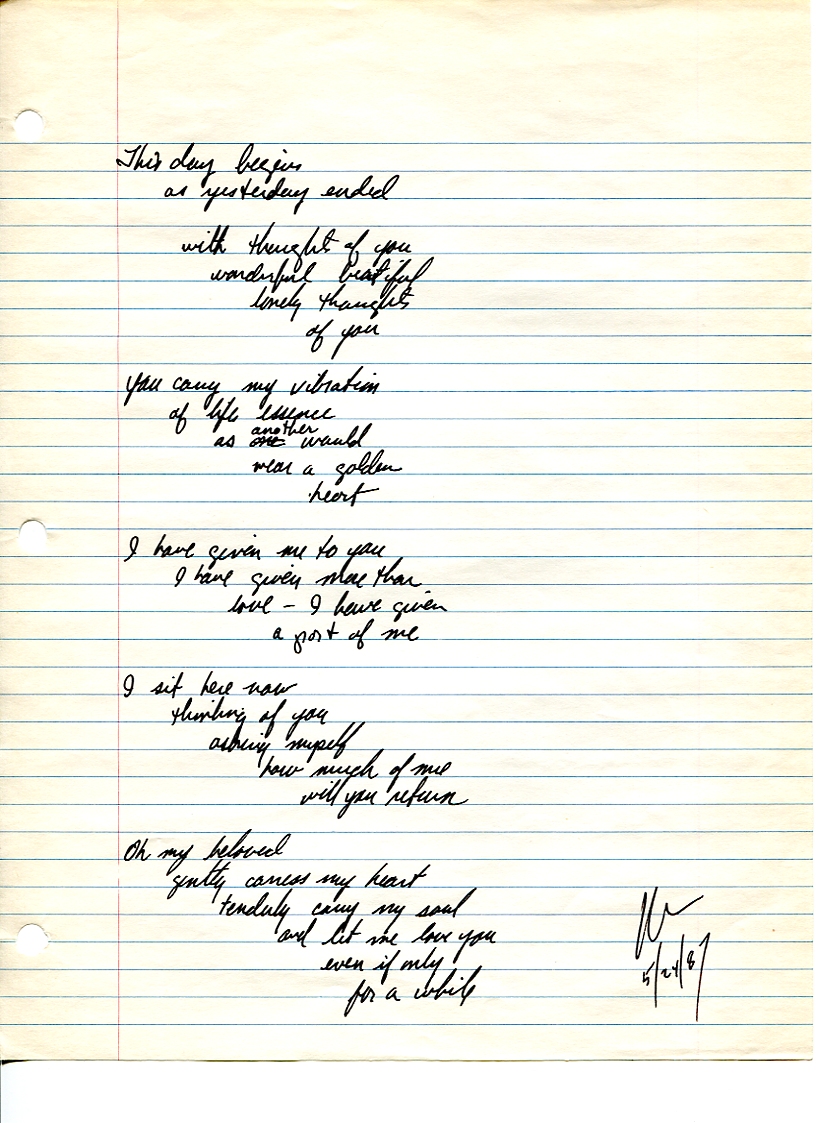 This day begins
as yesterday ended
with thought of you
wonderful beautiful
lonely thoughts
of you
You carry my vibration
of life essence
another
as one would
wear a golden
heart
I have given me to you
I have given more than
love – I have given
a part of me
I sit here now
thinking of you
asking myself
how much of me
will you return
Oh my beloved
gently caress my heart
tenderly carry my soul
and let me love you
even if only
for a while
5/24/87